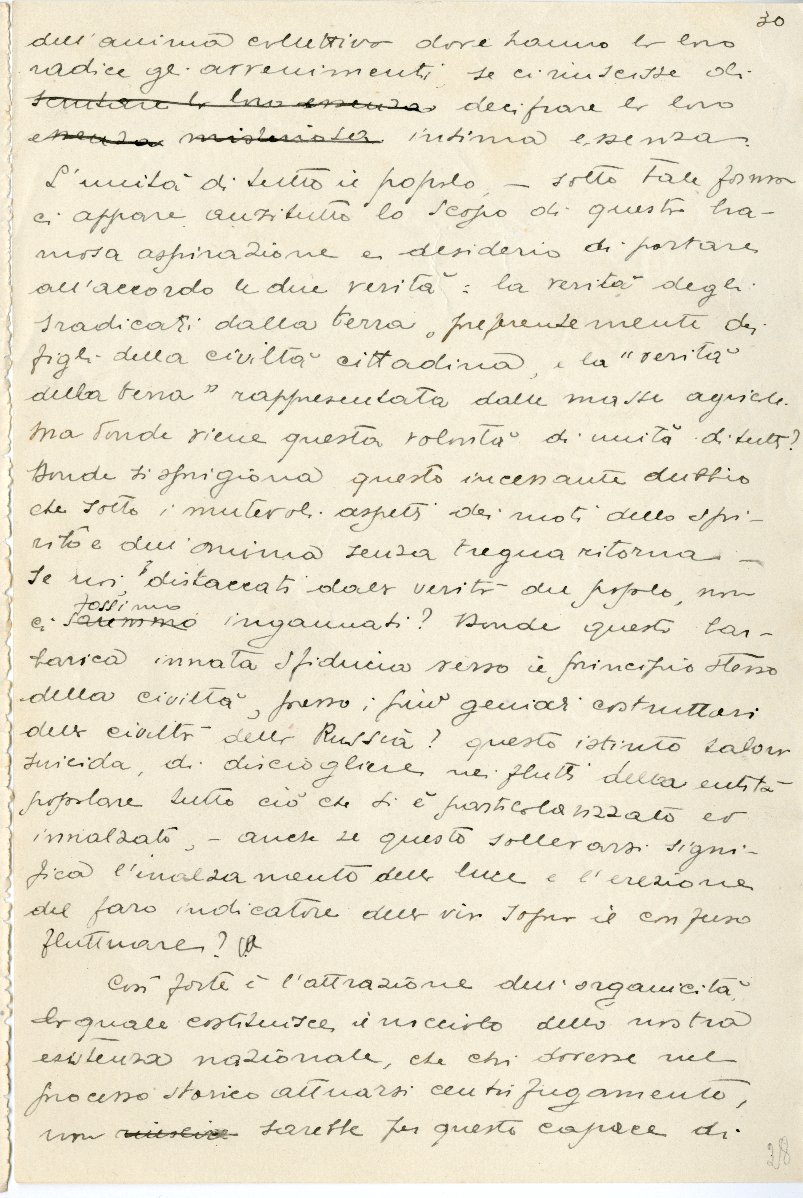 30
dell'anima collettiva dove hanno la loro
radice gli avvenimenti, se ci riuscisse di
scrutare la loro essenza decifrare la loro
essenza misteriosa intima essenza.
L'unità di tutto il popolo, — sotto tale forma
ci appare anzitutto lo scopo di questa bra-
mosa aspirazione e desiderio di portare
all'accordo le due verità: la verità degli
sradicati dalla terra, preferentemente dei
figli della civiltà cittadina, e la "verità
della terra" rappresentata dalle masse agricole.
Ma donde viene questa volontà di unità di tutti?
Donde si sprigiona questo incessante dubbio
che sotto i mutevoli aspetti dei moti dello spi-
rito e dell'anima senza tregua ritorna —
se noi, distaccati dalla verità del popolo, non
fossimo
ci saremmo ingannati? Donde questa bar-
barica innata sfiducia verso il principio stesso
della civiltà, presso i più geniali costruttori
della civiltà della Russia? questo istinto talora
suicida, di disciogliere nei flutti della entità
popolare tutto ciò che si è particolarizzato ed
innalzato, — anche se questo sollevarsi signi-
fica l'inalzamento della luce e l'erezione
del faro indicatore della via sopra il confuso
fluttuare?
Così forte è l'attrazione dell'organicità,
la quale costituisce il nocciolo della nostra
esistenza nazionale, che chi dovesse nel
processo storico attuarsi centrifugamento,
non riuscire sarebbe per questo capace di
28